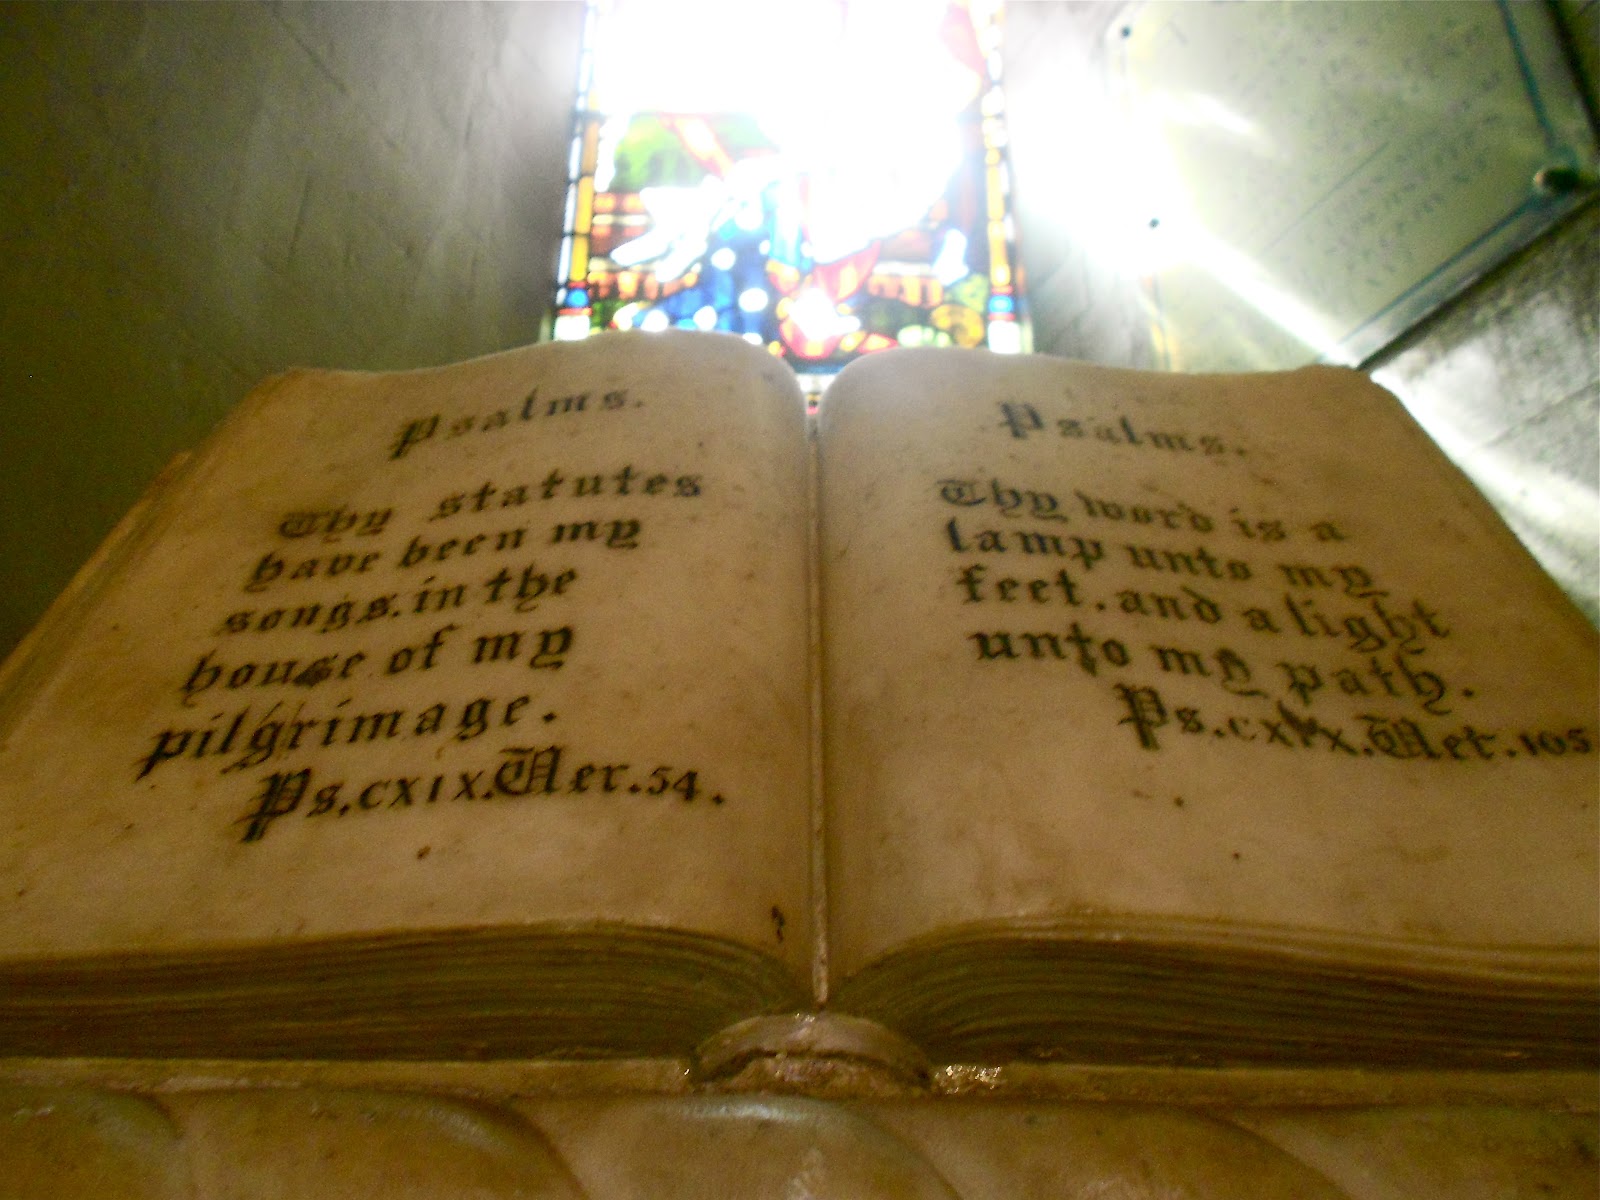 Psalms.
Thy statutes
have been my
songs. in the
house of my
pilgrimage.
Ps. CXIX. Ver. 54.
Psalms.
Thy word is a
lamp unto my
feet. and a light
unto my path.
Ps. CXIX. Ver. 105